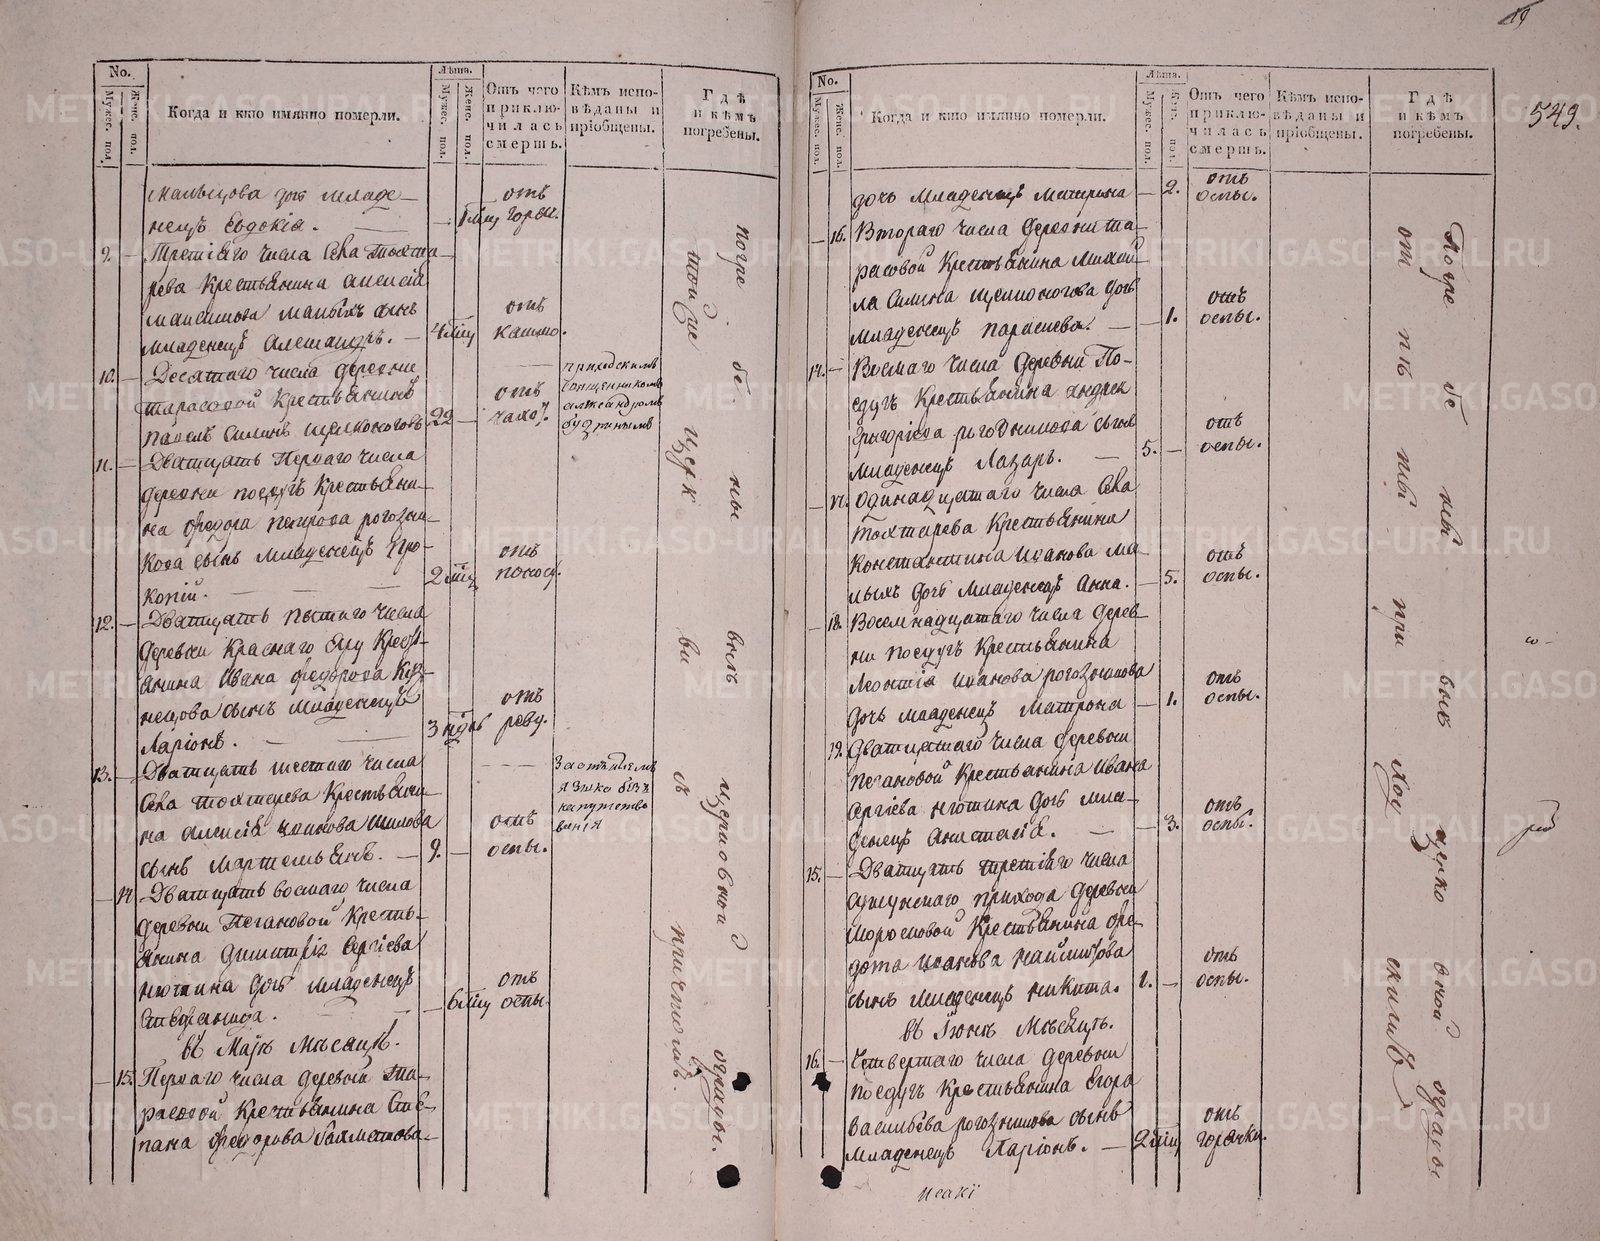 19
549.
No.
Мужес. пол
Женс. пол.
Когда и кто имянно померли.
Лѣта.
Мужес. пол.
Женс. пол.
Отъ чего приклю-
чилась смерть.
Кѣмъ испо-
вѣданы и
пріобщены.
Гдѣ
и кѣмъ
погребены.
мальцова дочь младе-
нецъ Евдокіа. — 1 мц отъ горяч.
9. — Третіяго числа Села Тохта-
рева Крестьянина алексіа
максимова малыхъ сынъ
младенецъ Александръ. — 4 мц отъ кашлю.
10. — Десятаго числа деревни
тарасовой Крестьянинъ
павелъ Силинъ щелконоговъ 22 — отъ чахо.
приходскимъ
священникомъ
александромъ
11. — Дватцать Перваго числа
деревни поедугъ Крестьяни-
на федора петрова рогозни-
кова сынъ младенецъ Про-
копій. — 2 мц отъ поносу.
12. — Дватцать пятаго числа
деревни Краснаго Яру Крест-
янина Ивана федорова Куз-
нецова сынъ младенецъ
Ларіонъ. — 3 ндль отъ реву.
13. — Дватцать шестаго числа
Села тохтарева Крестьяни-
на алексіа Иванова шилова
сынъ мартемьянъ. — 9. — отъ оспы.
за отъятіемъ
языка безъ
напутство
ванія
— 14 Дватцать восмаго числа
деревни Пегановой Кресть-
янина димитріа Сергіева
нютина дочь младенецъ
Степанида. — 6 мц отъ оспы.
въ Маіѣ Мѣсяцѣ.
— 15. Перваго числа деревни Та-
расовой Крестьянина Сте-
пана федорова бахметова
погре бе ны вылъ церковной ограды.
той же церк ви съ причтомъ.
No.
Мужес. пол.
Женс. пол.
Когда и кто имянно померли.
Лѣта.
Мужес. пол.
Женс. пол.
Отъ чего
приклю-
чилась
смерть.
Кѣмъ испо-
вѣданы и
пріобщены.
Гдѣ
и кѣмъ
погребены.
дочь младенецъ матрона — 2. отъ оспы.
— 16. Втораго числа деревни та-
расовой Крестьянина михаи-
ла Силина щелконогова дочь
младенецъ параскева. — 1. отъ оспы.
14. — Восмаго числа деревни По-
едугъ Крестьянина андреа
григоріева рогозникова сынъ
младенецъ Лазарь. — 5. — отъ оспы.
— 17. Одинадцатаго числа Села
тохтарева Крестьянина
Константина Иванова ма-
лыхъ дочь младенецъ анна. — 5. отъ оспы.
— 18. Восемнадцатаго числа дерев-
ни поедугъ Крестьянина
Леонтіа иванова рогозникова
дочь младенецъ матрона — 1. отъ оспы.
19. Дватцатаго числа деревни
пегановой Крестьянина Ивана
Сергіева нютина дочь мла-
денецъ анастасіа. — 3. отъ оспы.
15. — Дватцать третіяго числа
прихода деревни
морозковой Крестьянина фе-
дота иванова
сынъ младенецъ никита. 1. — отъ оспы.
въ Іюнѣ Мѣсяцѣ.
16. — Четвертаго числа деревни
поедугъ Крестьянина Егора
Васильева рогозникова сынъ
младенецъ Ларіонъ. — 2 мц отъ горячки.
Погре бе ны вылъ церко вной ограды